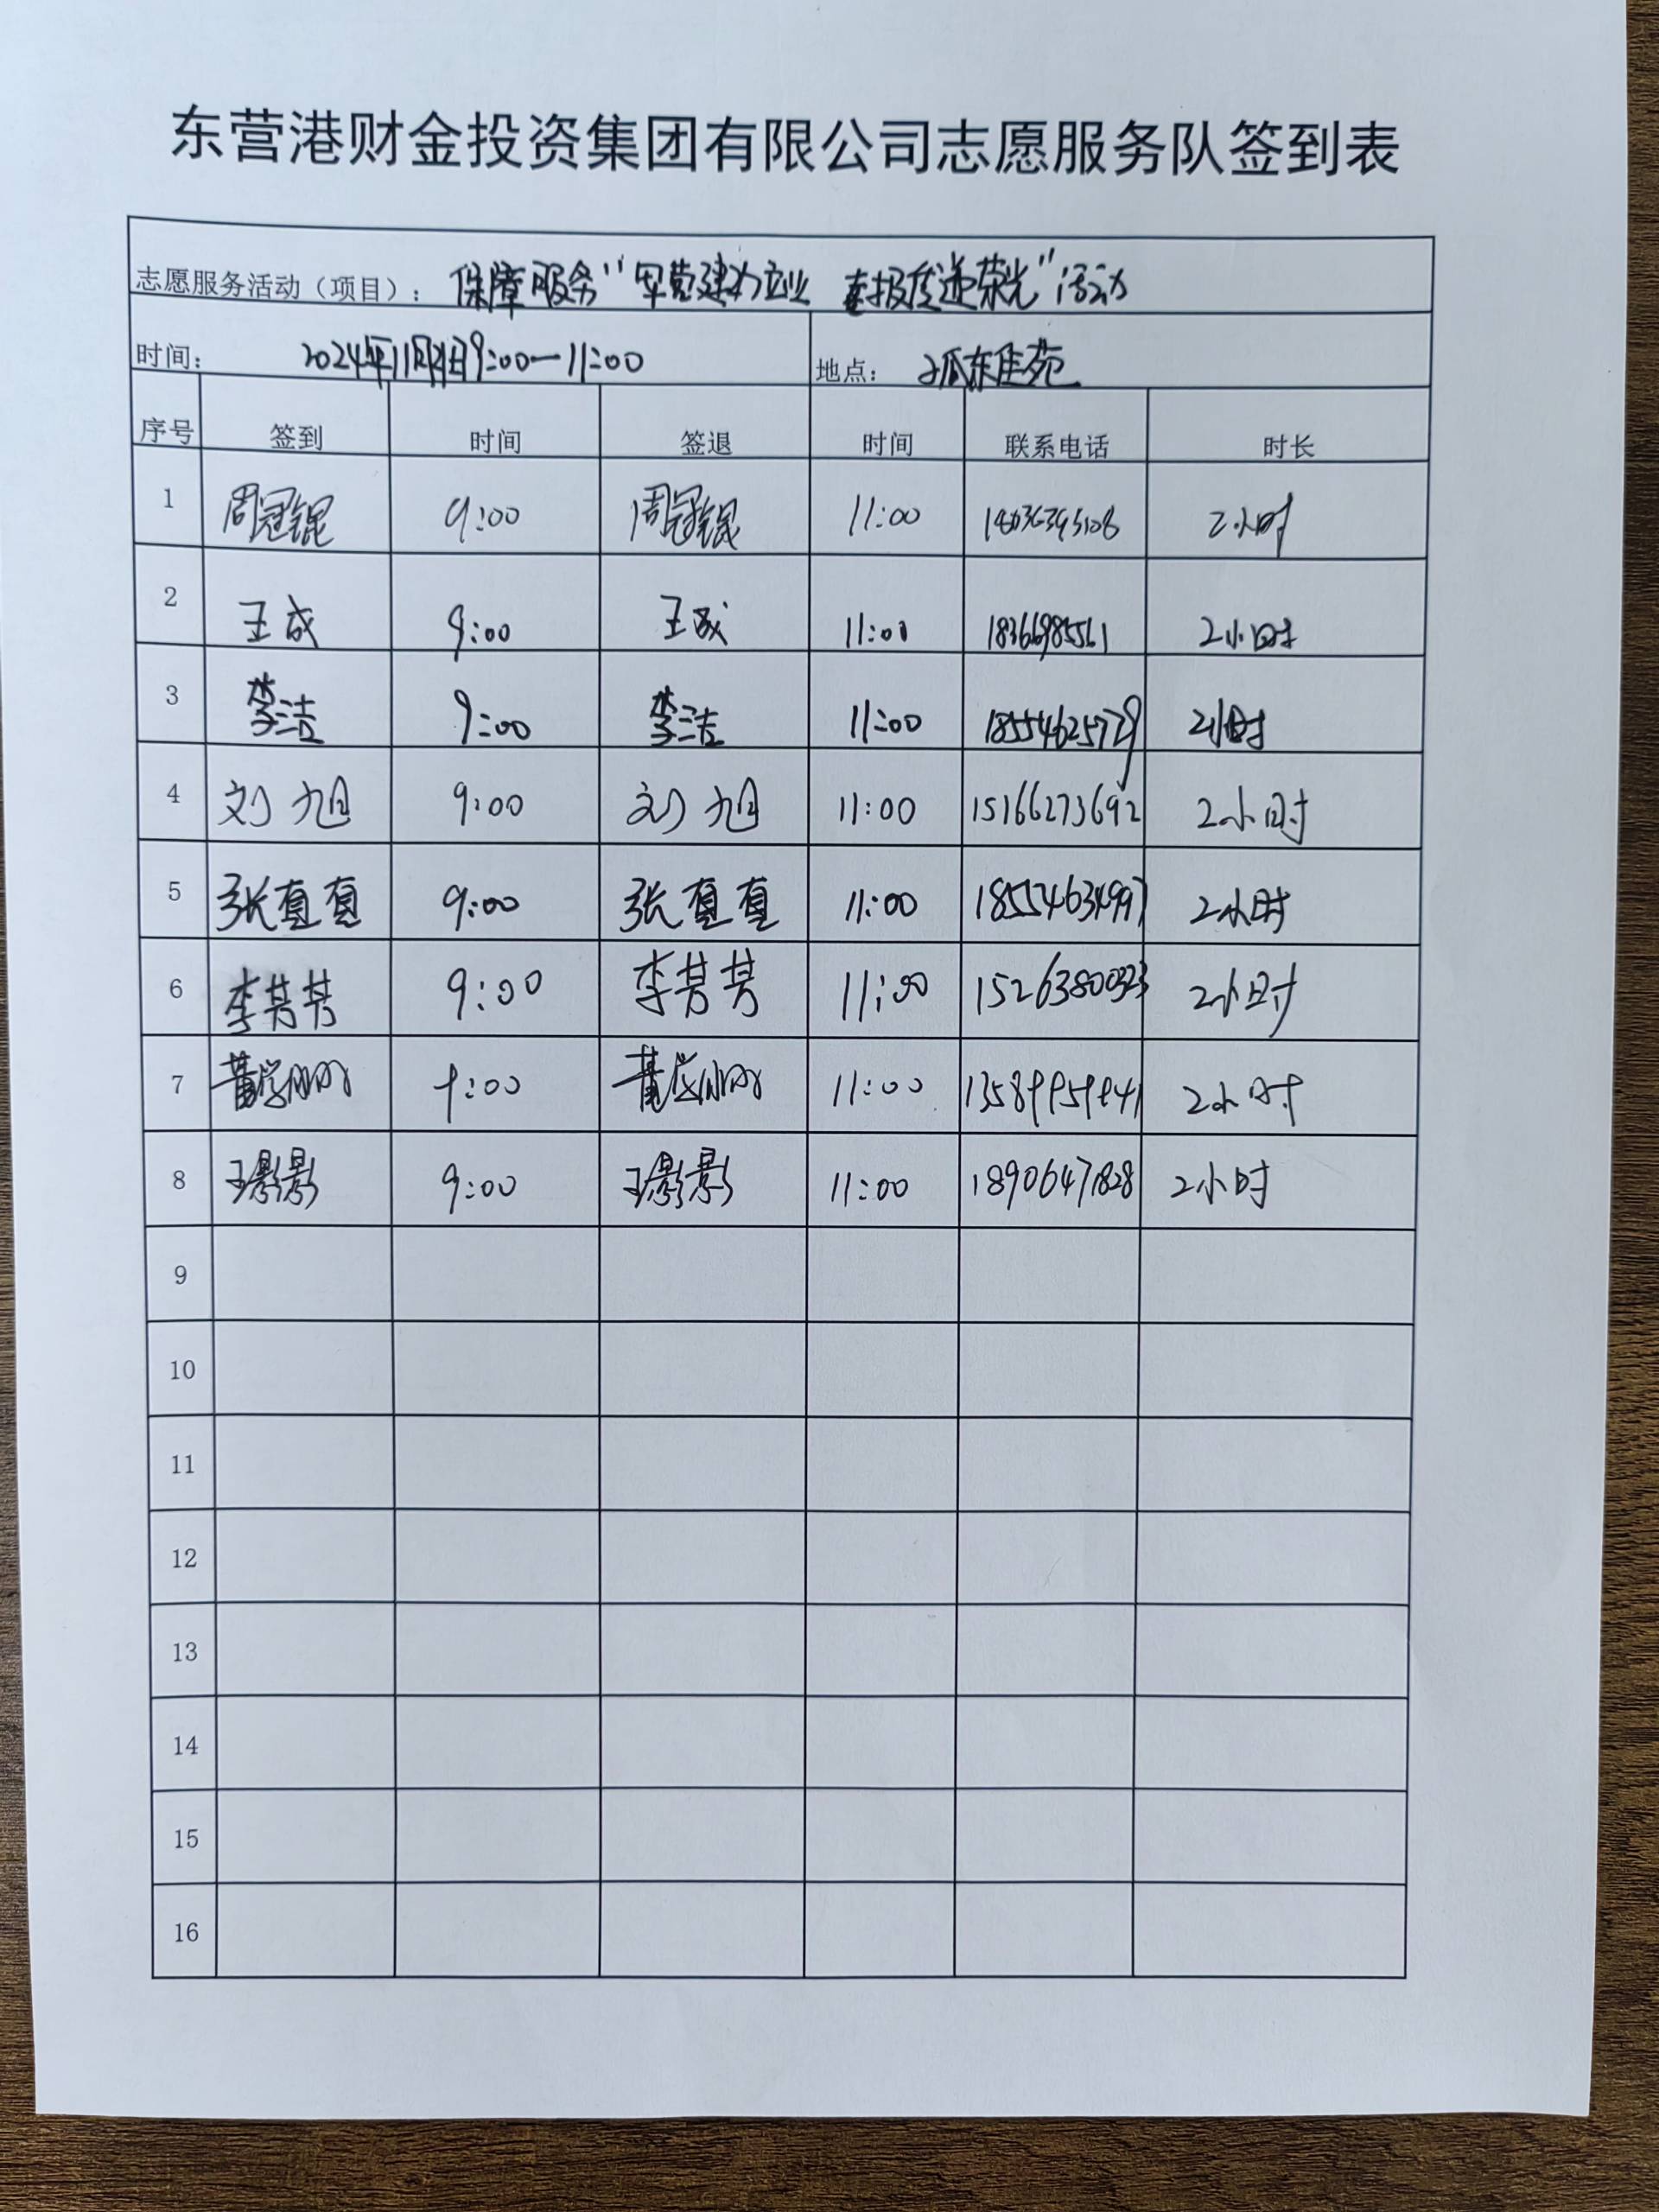 东营港财金投资集团有限公司志愿服务队签到表
志愿服务活动（项目）： 保障服务“军营建功立业 喜报传递荣光”活动
时间： 2024年11月21日9:00—11:00 地点： 孤东佳苑
序号 签到 时间 签退 时间 联系电话 时长
1 周冠锟 9:00 周冠锟 11:00 2小时
2 王成 9:00 王成 11:00 18366985561 2小时
3 李洁 9:00 李洁 11:00 18554625729 2小时
4 刘旭 9:00 刘旭 11:00 15166273692 2小时
5 张直直 9:00 张直直 11:00 18554634997 2小时
6 李芳芳 9:00 李芳芳 11:00 15263800323 2小时
7 9:00 11:00 13589959941 2小时
8 王影影 9:00 王影影 11:00 18906471828 2小时
9
10
11
12
13
14
15
16